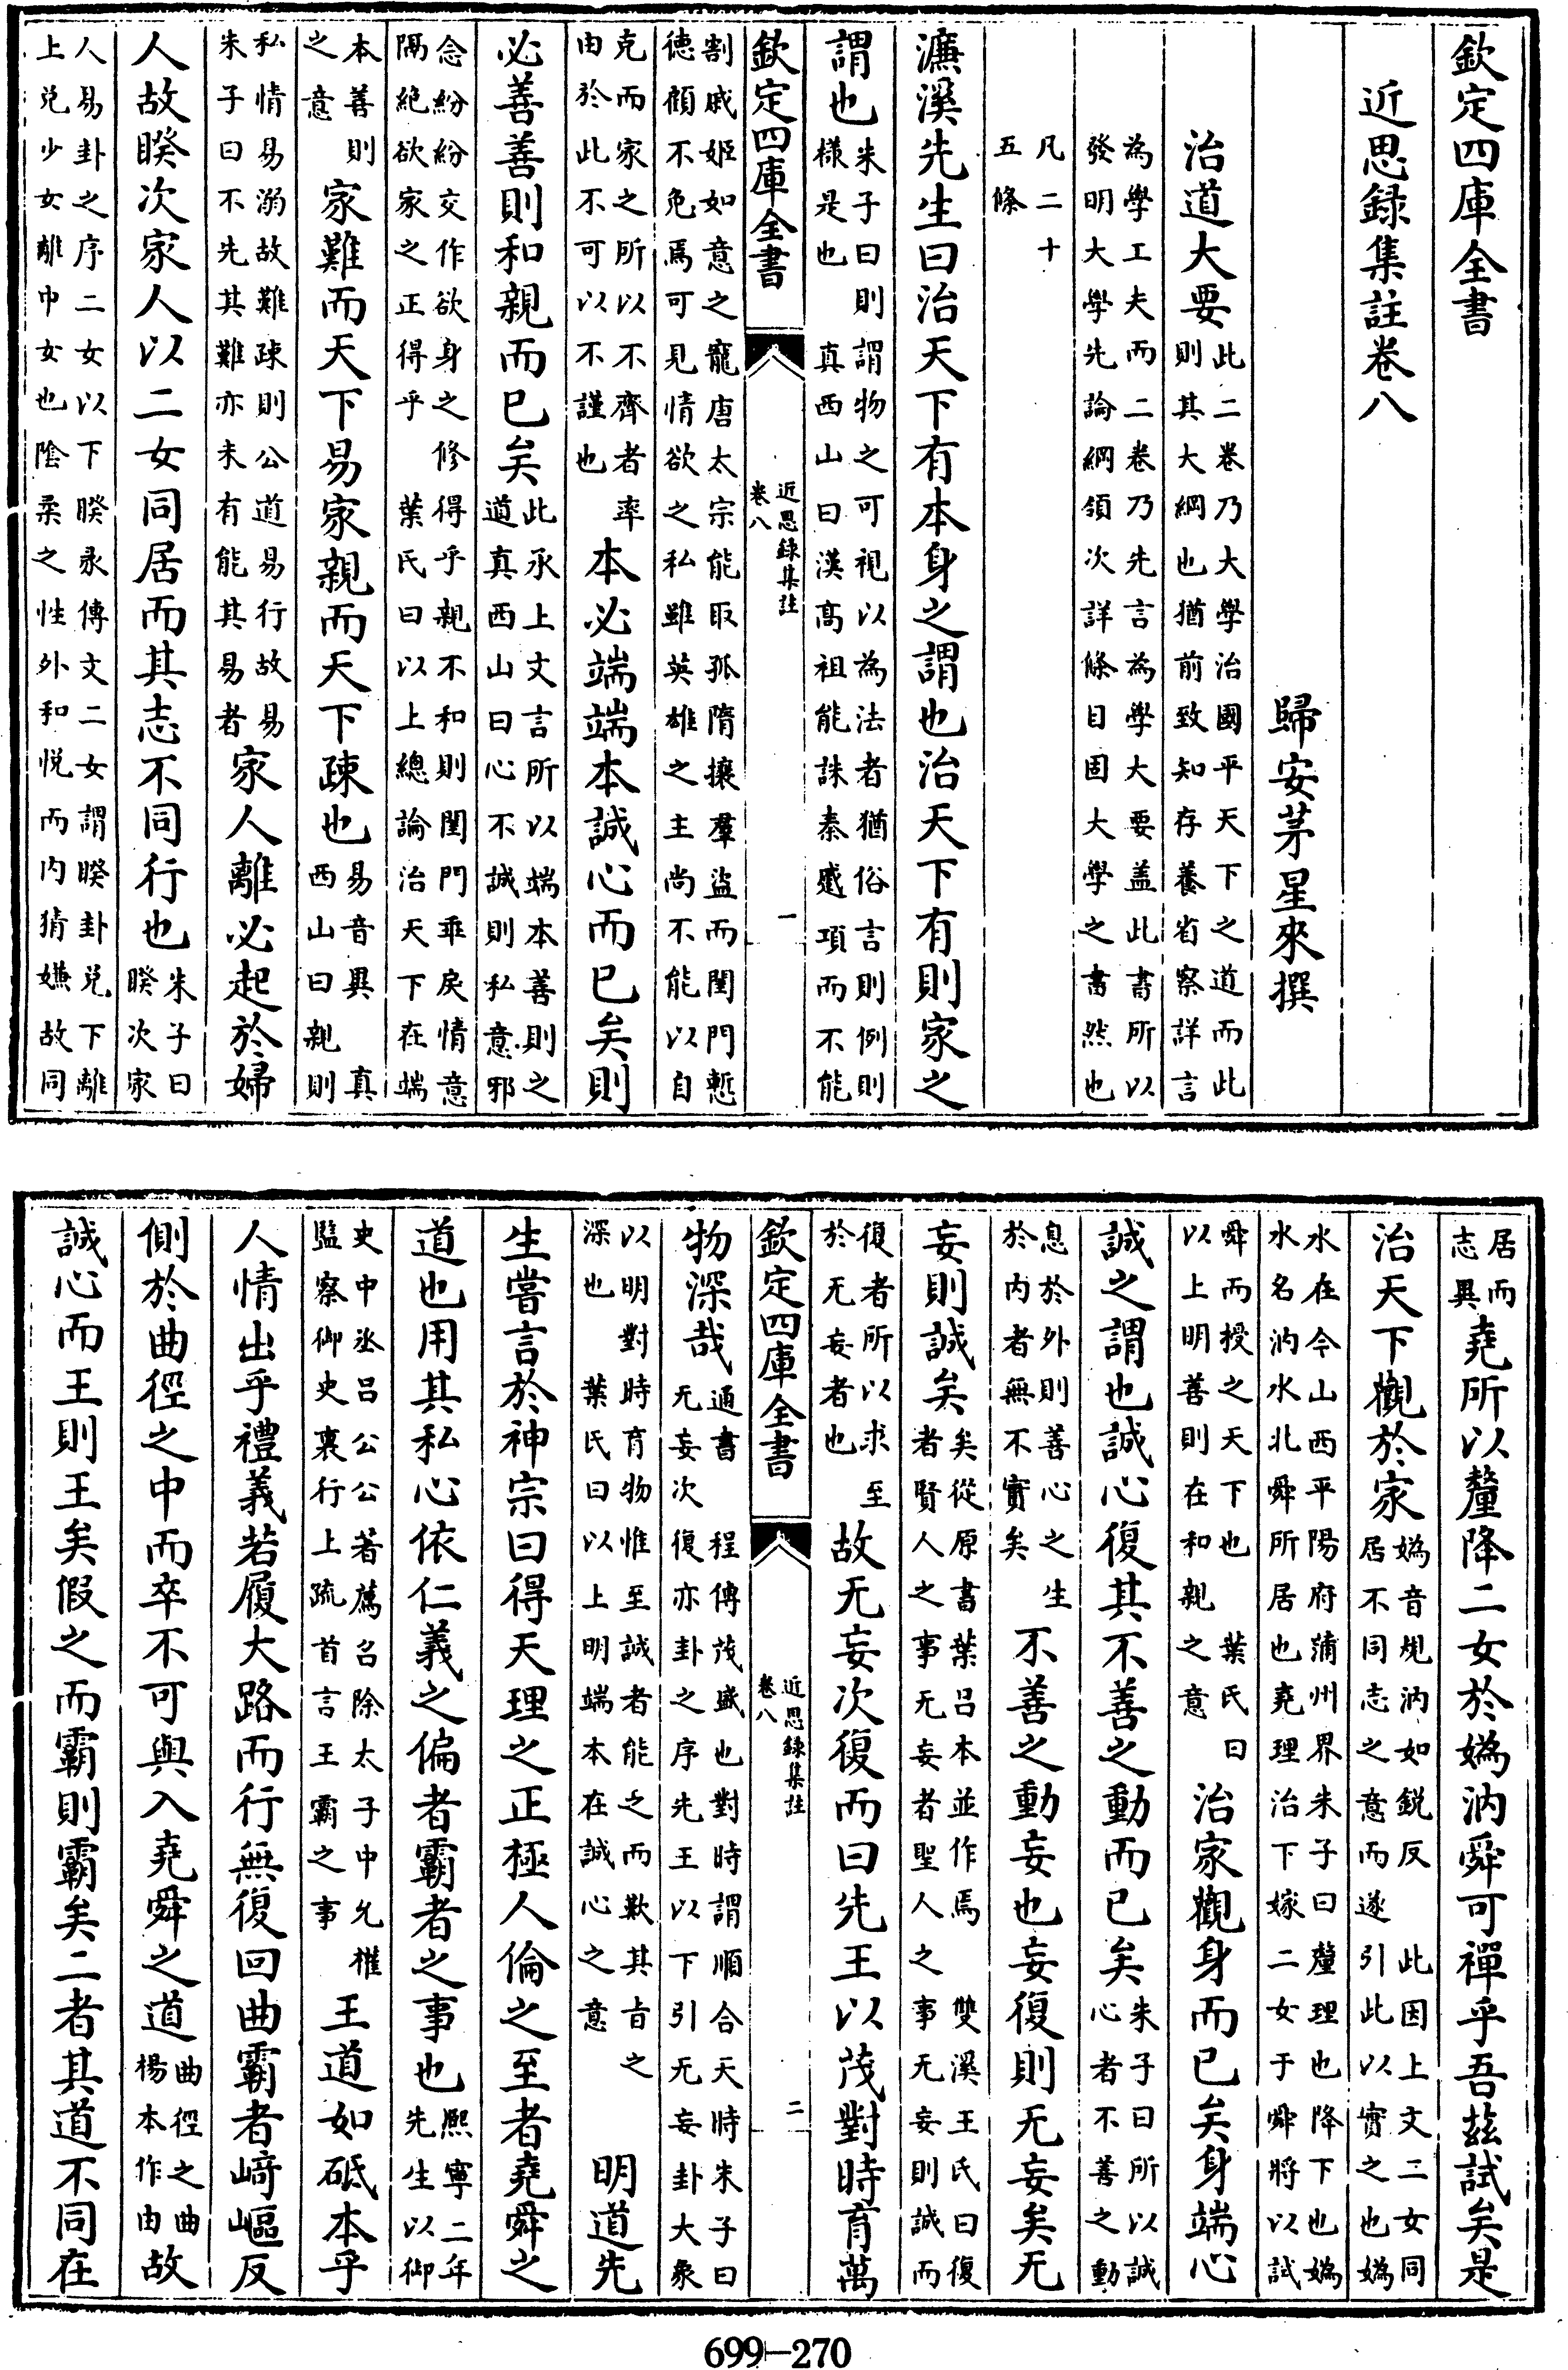 欽定四庫全書
近思録集註卷八
歸安茅星來撰
治道大要此二卷乃大學治國平天下之道而此則其大綱也猶前致知存養省察詳言
為學工夫而二卷乃先言為學大要盖此書所以發明大學先論綱領次詳條目固大學之書然也
凡二十五條
濂溪先生曰治天下有本身之謂也治天下有則家之
謂也朱子曰則謂物之可視以為法者猶俗言則例則様是也真西山曰漢髙祖能誅秦蹙項而不能
欽定四庫全書
近思録集註
卷八
一
割戚姬如意之寵唐太宗能取孤隋攘羣盗而閨門慙德顧不免焉可見情欲之私雖英雄之主尚不能以自
克而家之所以不齊者率由於此不可以不謹也本必端端本誠心而已矣則
必善善則和親而已矣此承上文言所以端本善則之道真西山曰心不誠則私意邪
念紛紛交作欲身之修得乎親不和則閨門乖戾情意隔絶欲家之正得乎葉氏曰以上總論治天下在端
本善則之意家難而天下易家親而天下疎也易音異真西山曰親則
私情易溺故難疎則公道易行故易朱子曰不先其難亦未有能其易者家人離必起於婦
人故睽次家人以二女同居而其志不同行也朱子曰睽次家
人易卦之序二女以下睽彖傳文二女謂睽卦兑下離上兑少女離中女也陰柔之性外和悦而内猜嫌故同
居而志異堯所以釐降二女於媯汭舜可禪乎吾兹試矣是
治天下觀於家媯音規汭如鋭反此因上文二女同居不同志之意而遂引此以實之也媯
水在今山西平陽府蒲州界朱子曰釐理也降下也媯水名汭水北舜所居也堯理治下嫁二女于舜將以試
舜而授之天下也葉氏曰以上明善則在和親之意治家觀身而已矣身端心
誠之謂也誠心復其不善之動而已矣朱子曰所以誠心者不善之動
息於外則善心之生於内者無不實矣不善之動妄也妄復則无妄矣无
妄則誠矣矣從原書葉吕本並作焉雙溪王氏曰復者賢人之事无妄者聖人之事无妄則誠而
復者所以求至於无妄者也故无妄次復而曰先王以茂對時育萬
欽定四庫全書
近思録集註
卷八
二
物深哉通書无妄次復亦卦之序先王以下引无妄卦大象程傳茂盛也對時謂順合天時朱子曰
以明對時育物惟至誠者能之而歎其㫖之深也葉氏曰以上明端本在誠心之意明道先
生嘗言於神宗曰得天理之正極人倫之至者堯舜之
道也用其私心依仁義之偏者霸者之事也熙寧二年先生以御
史中丞吕公公著薦召除太子中允權監察御史裏行上疏首言王霸之事王道如砥本乎
人情出乎禮義若履大路而行無復回曲霸者﨑嶇反
側於曲徑之中而卒不可與入堯舜之道曲徑之曲楊本作由故
誠心而王則王矣假之而霸則霸矣二者其道不同在
699-270